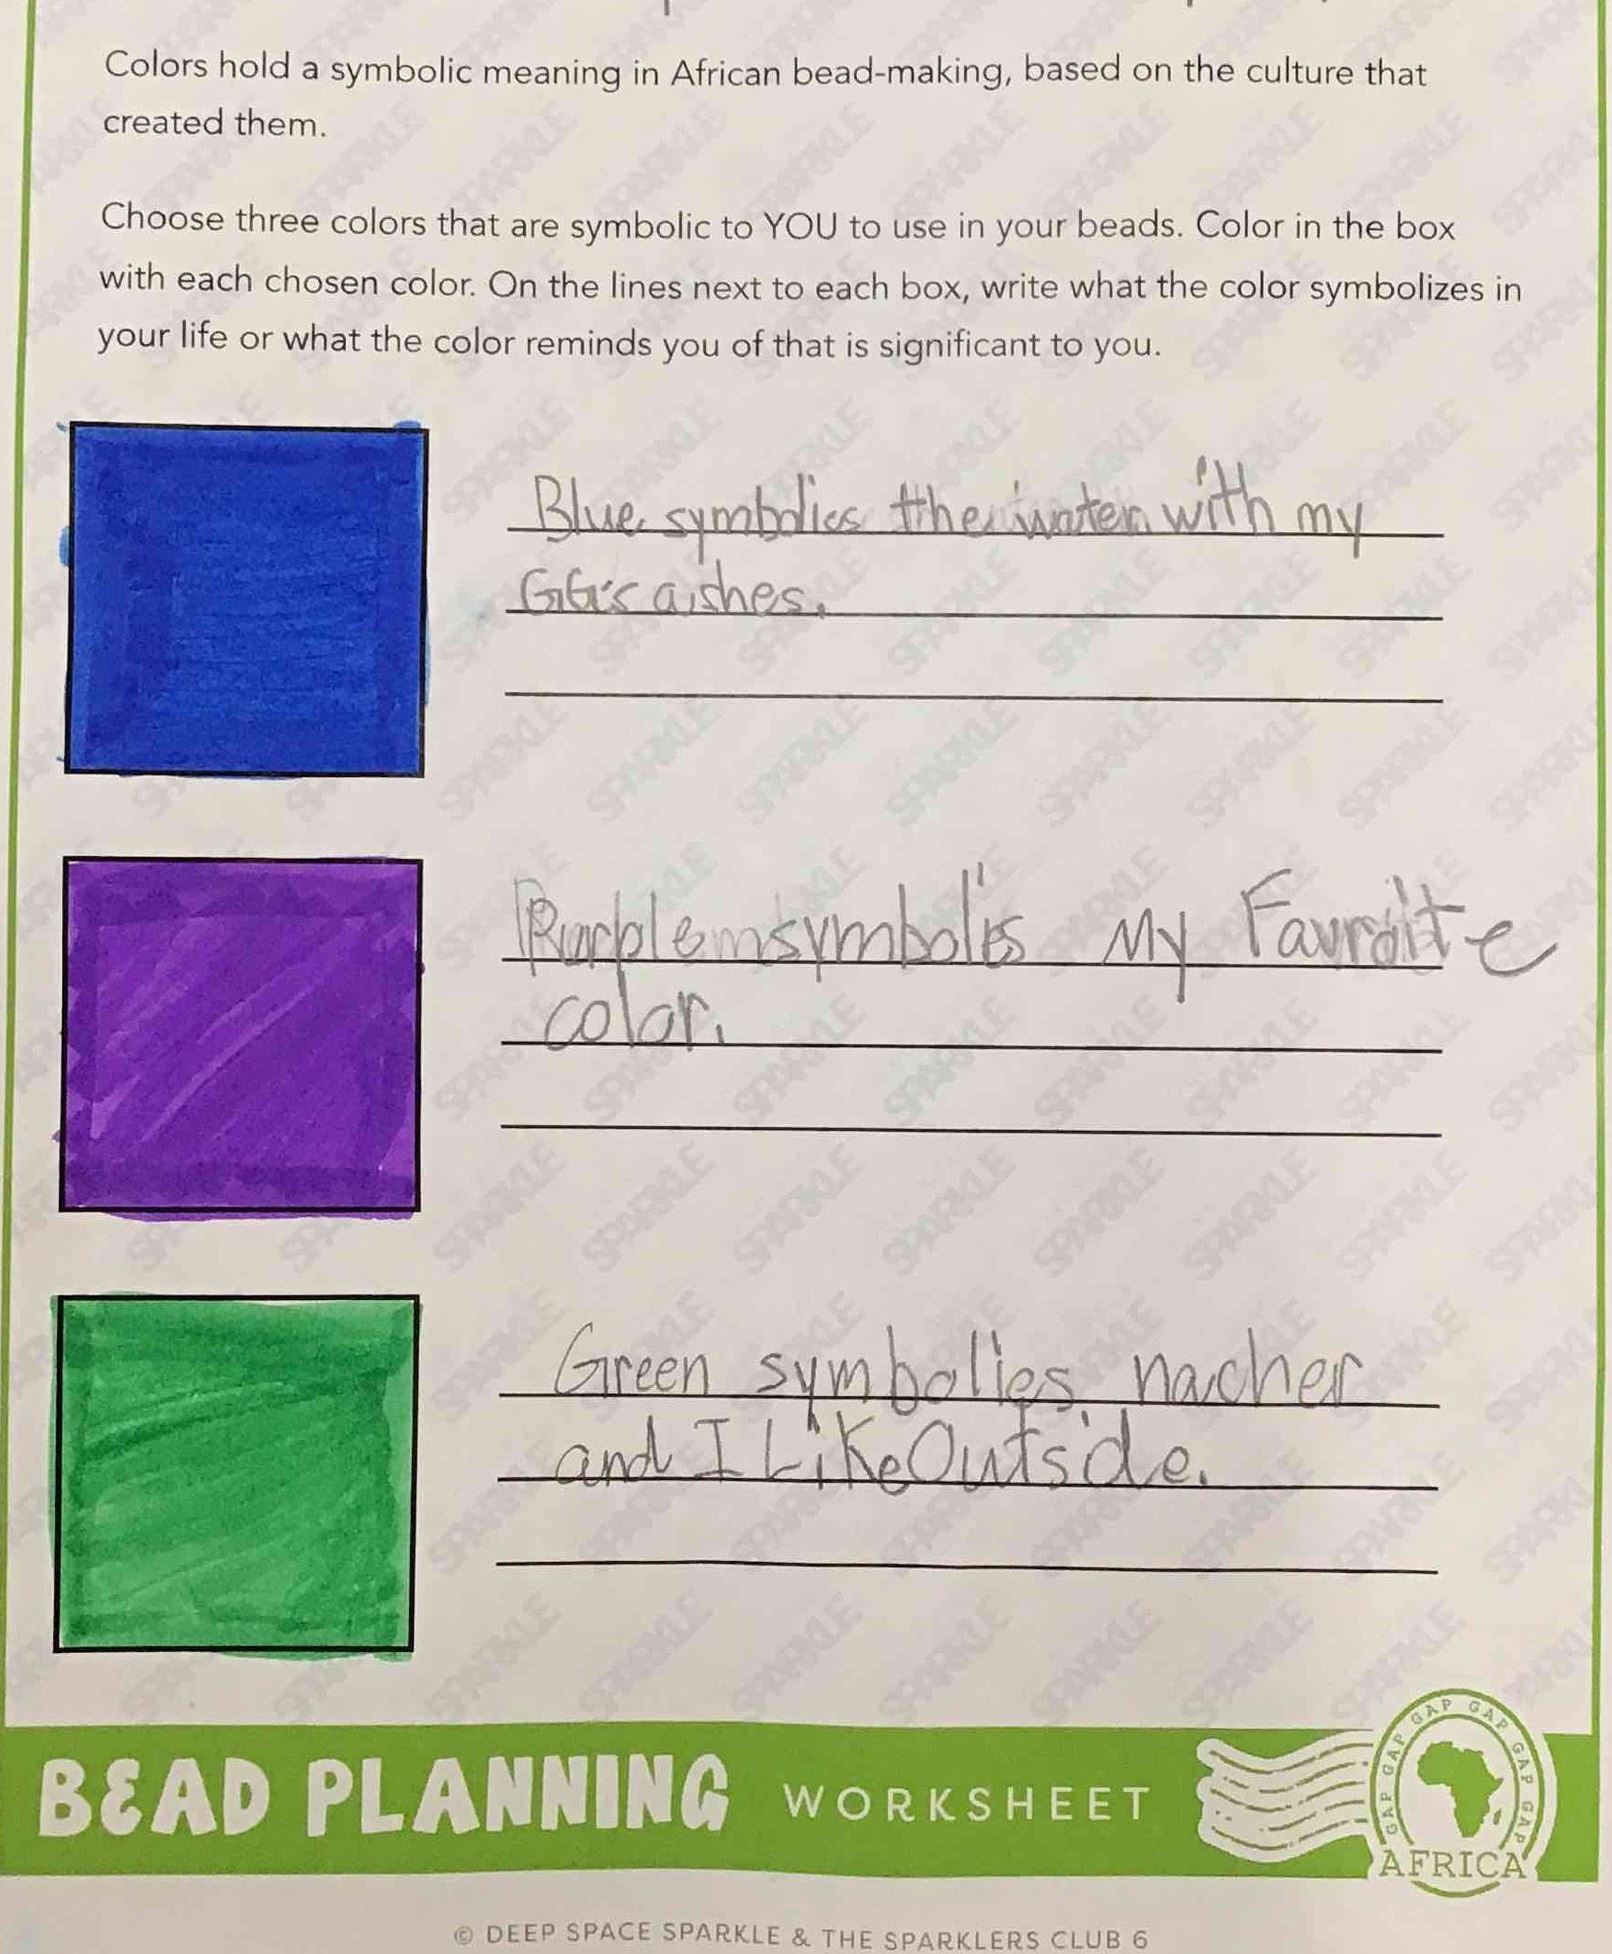 Colors hold a symbolic meaning in African bead-making, based on the culture that
created them.
Choose three colors that are symbolic to YOU to use in your beads. Color in the box
with each chosen color. On the lines next to each box, write what the color symbolizes in
your life or what the color reminds you of that is significant to you.
Blue symbolies the water with my
GG's ashes.
Purple symbolies my Favroite
color.
Green symbolies nacher
and I Like Outside.
BEAD PLANNING WORKSHEET
GAP GAP GAP GAP GAP GAP
AFRICA
© DEEP SPACE SPARKLE & THE SPARKLERS CLUB 6